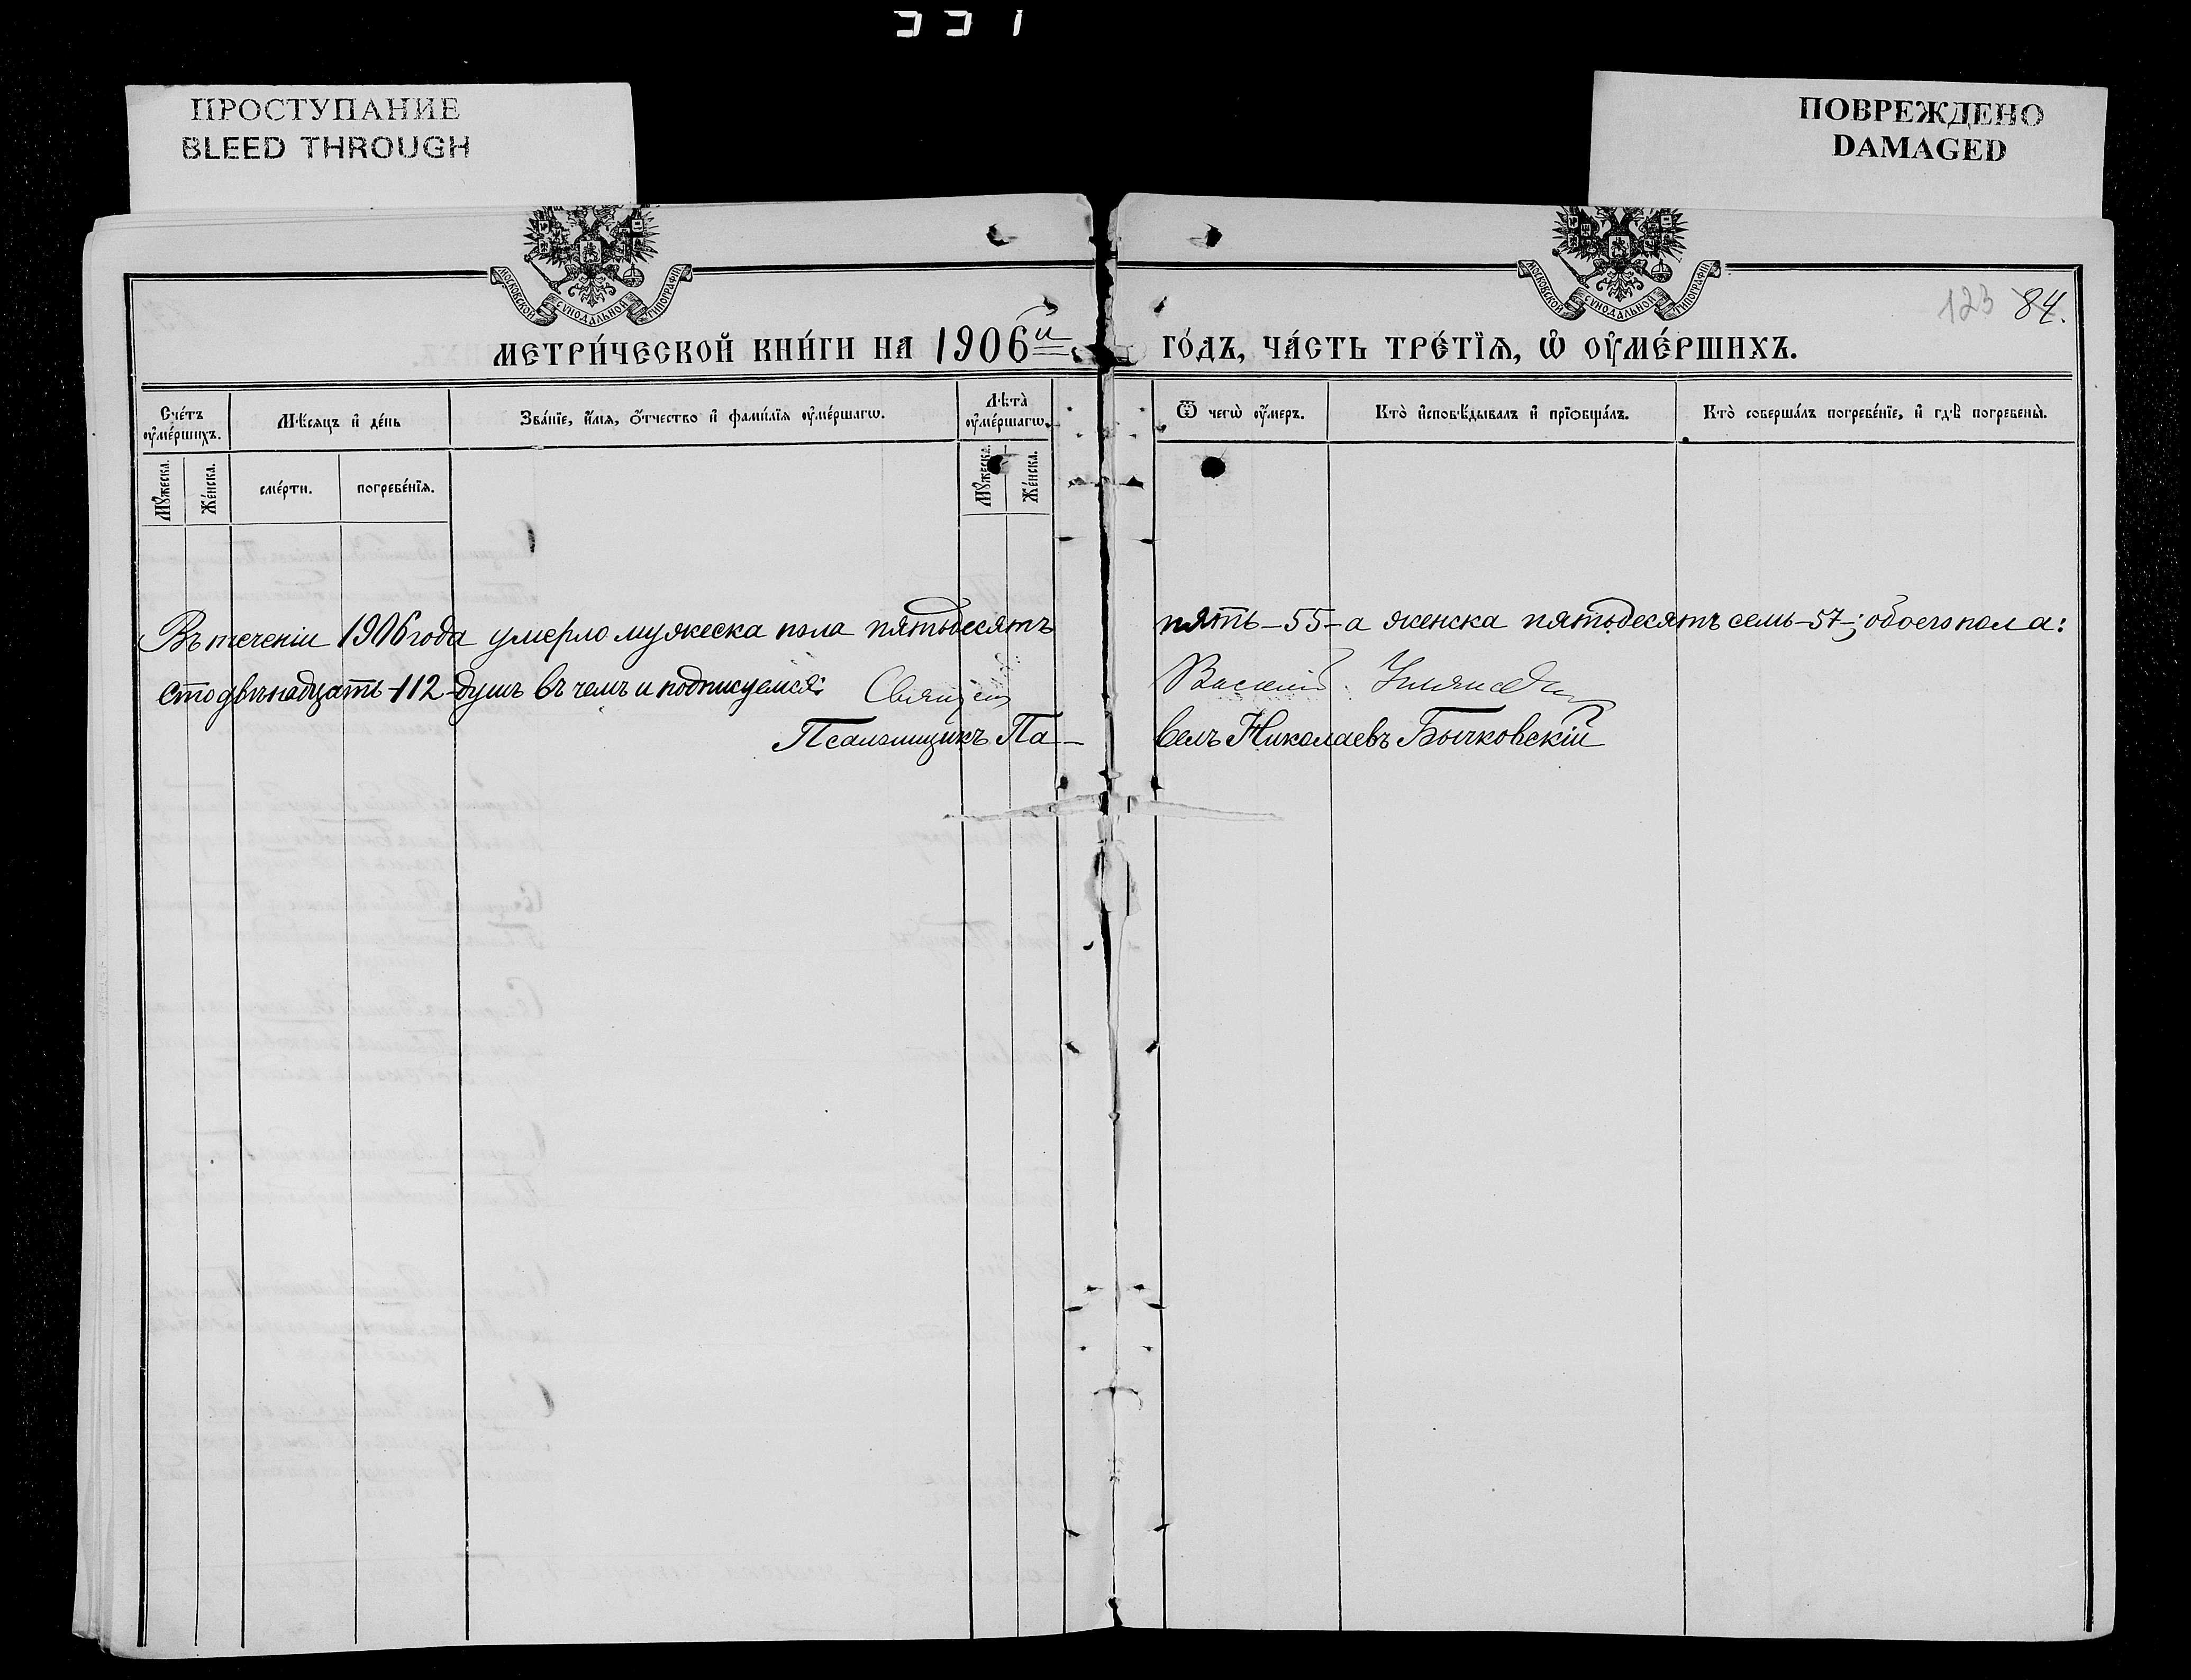 331
ПРОСТУПАНИЕ
BLEED THROUGH
ПОВРЕЖДЕНО
DAMAGED
МОСКОВСКОЙ СѴНОДАЛЬНОЙ ТИПОГРАФІИ
МОСКОВСКОЙ СѴНОДАЛЬНОЙ ТИПОГРАФІИ
123 84.
МЕТРИ́ЧЕСКОЙ КНИ́ГИ НА 1906й ГО́ДЪ, ЧА́СТЬ ТРЕ́ТІѦ, Ѡ҆ ОУ҆МЕ́РШИХЪ.
Сче́тъ оу҆ме́ршихъ.
Мѣ́сяцъ и҆ де́нь
Зва́нїе, и҆́мѧ, ѻ҆́тчество и҆ фами́лїѧ оу҆ме́ршагѡ.
Лѣ́та̀ оу҆ме́ршагѡ.
Ѿ чегѡ̀ оу҆́меръ.
Кто̀ и҆сповѣ́дывалъ и҆ прїѡбща́лъ.
Кто̀ соверша́лъ погребе́нїе, и҆ гдѣ̀ погребены̀.
Мꙋ́жеска.
Же́нска.
сме́рти.
погребе́нїѧ.
Мꙋ́жеска.
Же́нска.
Въ теченіи 1906 года умерло мужеска пола пятьдесятъ пять-55-а женска пятьдесятъ семь-57-; обоего пола:
сто двѣнадцать-112-душъ въ чемъ и подписуемся: Священ Василій
Псаломщикъ Павелъ Николаевъ Бычковскій